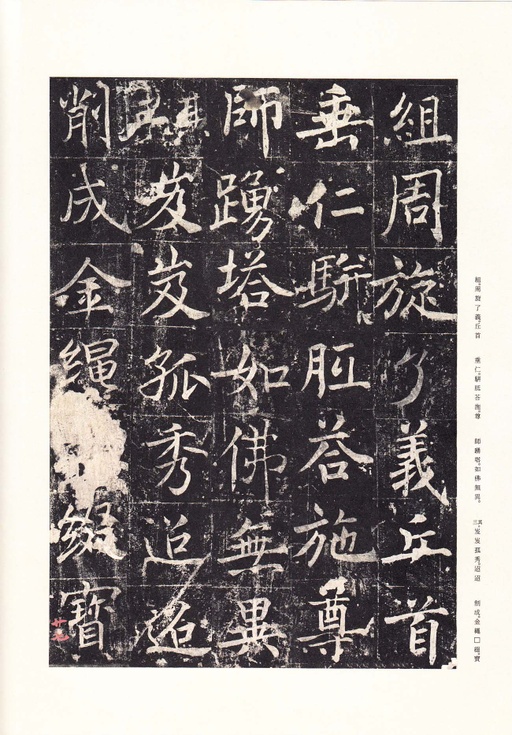 組周旋了義丘首
垂仁駢胝荅施尊
師踴塔如佛無異
其三岌岌孤秀迢迢
削成金繩綴寶
組。周旋了義。丘首　垂仁。駢胝荅施。尊　師踴塔。如佛無異。　其三岌岌孤秀。迢迢　削成。金繩□綴。寶